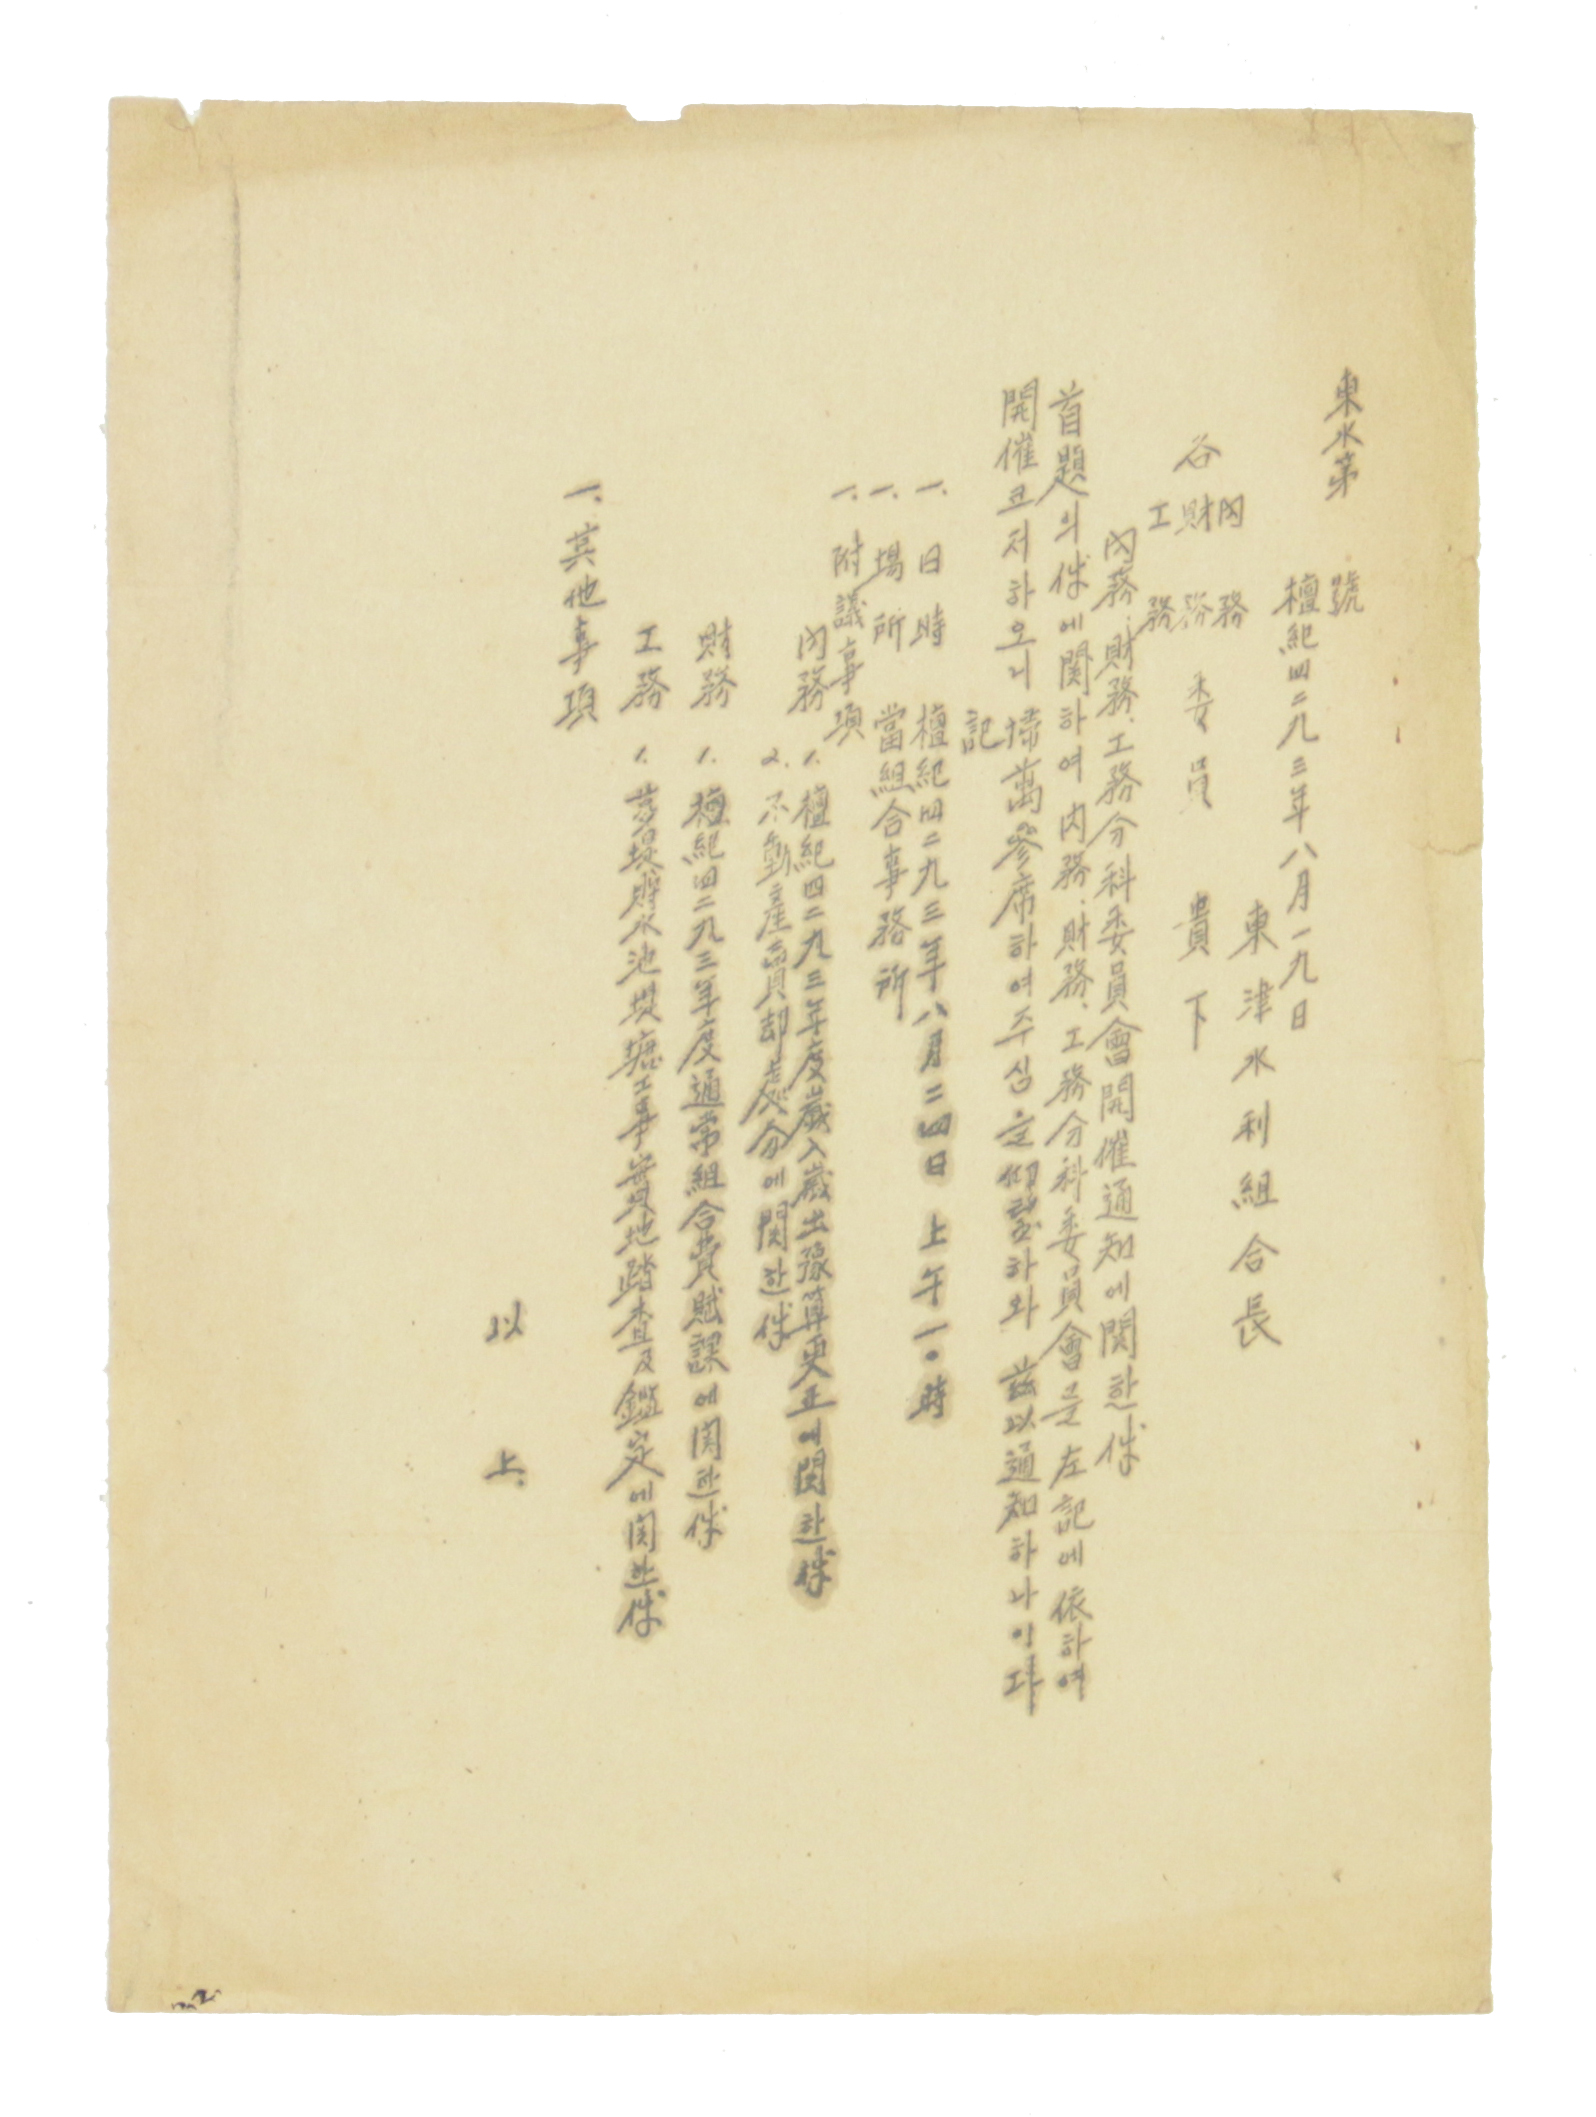 東水第　　號
檀紀四二九三年八月一九日
東津水利組合長
各 內務 財務 工務 委員 貴下
內務、財務、工務分科委員會開催通知에関한件
首題의件에関하여內務、財務、工務分科委員會를左記에依하여
開催코저하오니掃萬參席하여주심을仰望하와 玆以通知하나이다
記
一. 日時 檀紀四二九三年八月二四日 上午一〇時
一. 場所 當組合事務所
一. 附議事項
內務 1. 檀紀四二九三年度歲入歲出豫算更正에関한件
2. 不動産賣却處分에関한件
財務 1. 檀紀四二九三年度通常組合費賦課에関한件
工務 1. 堤貯水池堤塘工事實地踏査及鑑定에関한件
一. 其他事項
以上.